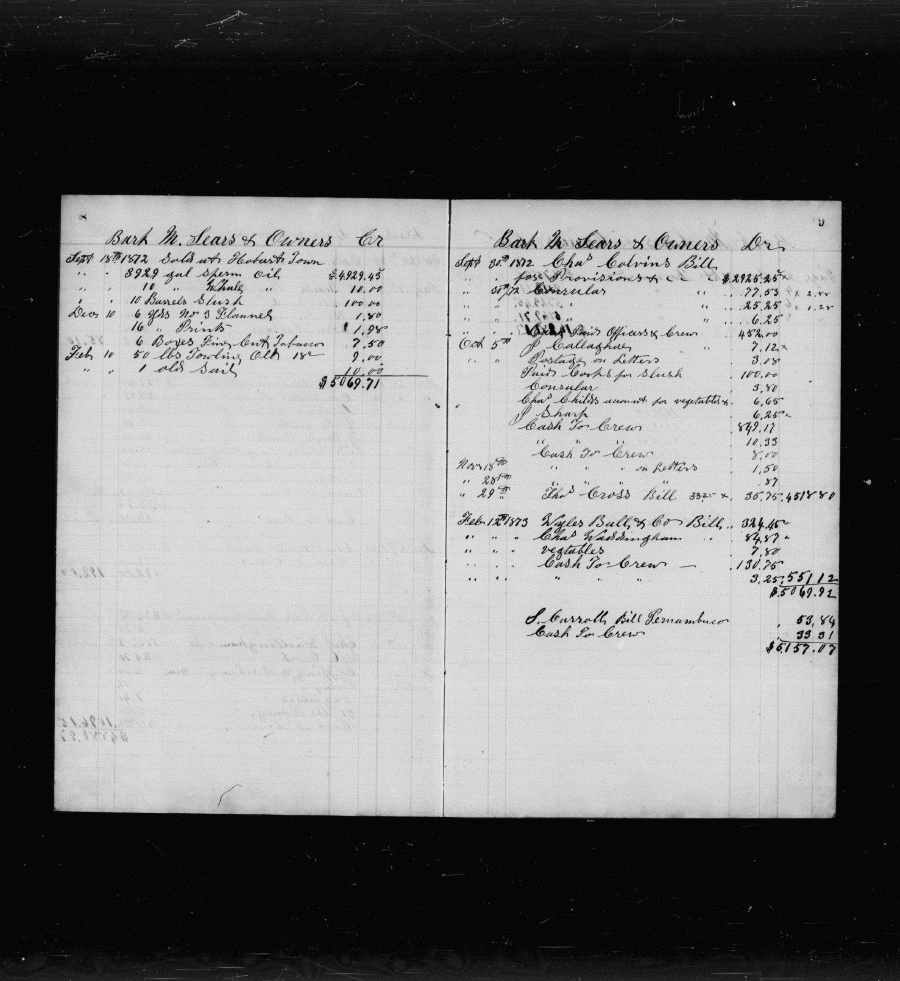 8
Bark M. Sears & Owners Cr
Sept 18th 1872 Sold at Hobart Town
" " 8929 gal Sperm Oil $4929.45
" " 10 " Whale " 10.00
" " 10 Barrels Slush 100.00
Dec 10 6 yds No 3 Flannel 1.80
16 " Prints 1.98
6 Boxes Fine Cut Tobacco 7.50
Feb 10 50 lbs Towling Oth 18c 9.00
" " 1 old Sail 10.00
$5069.71
9
Bark M. Sears & Owners Dr
Sept 30th 1872 Chas Colvins Bill
" " for Provisions & c $2925.25
" 30/72 Consular " 77.53
" " " " 25.25
" " " " 6.25
" " Cash Paid Officers & Crew 452.00
Oct 5th J Callaghan " 7.12
" " Postage on Letters 3.18
Paid Cooks for Slush 100.00
Consular 3.80
Chas Childs account for vegetables 6.65
J Sharp 6.25
Cash To Crew 849.17
" " " 10.33
Cash To Crew 8.00
Nov 18th " " " on Letters 1.50
" 28th " " .87
" 29th Thos Cross Bill 35.75 4518 80
Feb 12th 1873 Wyles Balls & Co Bill 324.45
" " " Chas Waddingham " 84.87
" " " vegtables 7.80
" " " Cash To Crew — 130.75
" " " " " " 3.25 551 12
$5069.92
S. Carroll Bill Pernambuco 53.84
Cash To Crew 33 31
$5157.07